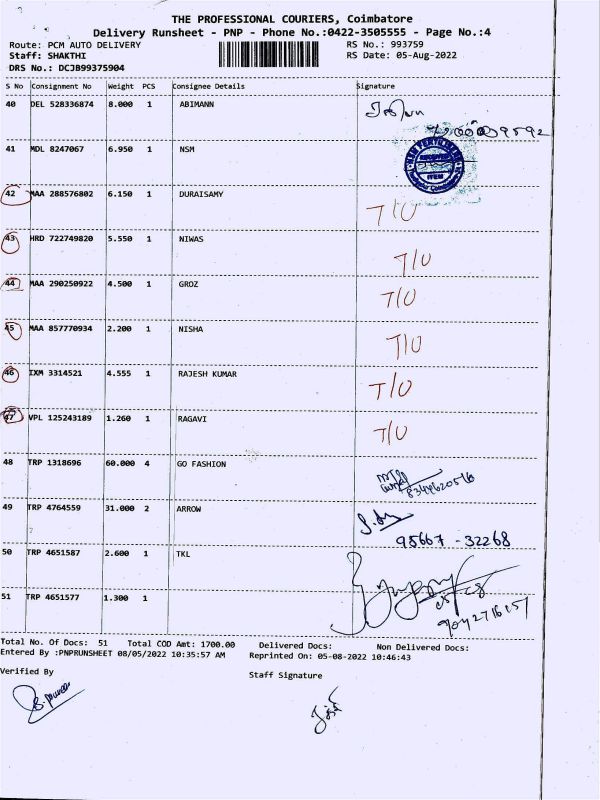 THE PROFESSIONAL COURIERS, Coimbatore
Delivery Runsheet - PNP - Phone No.:0422-3505555 - Page No.:4
Route: PCM AUTO DELIVERY RS No.: 993759
Staff: SHAKTHI RS Date: 05-Aug-2022
DRS No.: DCJB99375904
S No Consignment No Weight PCS Consignee Details Signature
40 DEL 528336874 8.000 1 ABIMANN
41 MDL 8247067 6.950 1 NSM
RECEIVED
42 MAA 288576802 6.150 1 DURAISAMY T/U
43 HRD 722749820 5.550 1 NIWAS T/U
44 MAA 290250922 4.500 1 GROZ T/U
45 MAA 857770934 2.200 1 NISHA T/U
46 IXM 3314521 4.555 1 RAJESH KUMAR T/U
47 VPL 125243189 1.260 1 RAGAVI T/U
48 TRP 1318696 60.000 4 GO FASHION
8344620516
49 TRP 4764559 31.000 2 ARROW
95667-32268
50 TRP 4651587 2.600 1 TKL
51 TRP 4651577 1.300 1
9042716157
Total No. Of Docs: 51 Total COD Amt: 1700.00 Delivered Docs: Non Delivered Docs:
Entered By :PNPRUNSHEET 08/05/2022 10:35:57 AM Reprinted On: 05-08-2022 10:46:43
Verified By Staff Signature